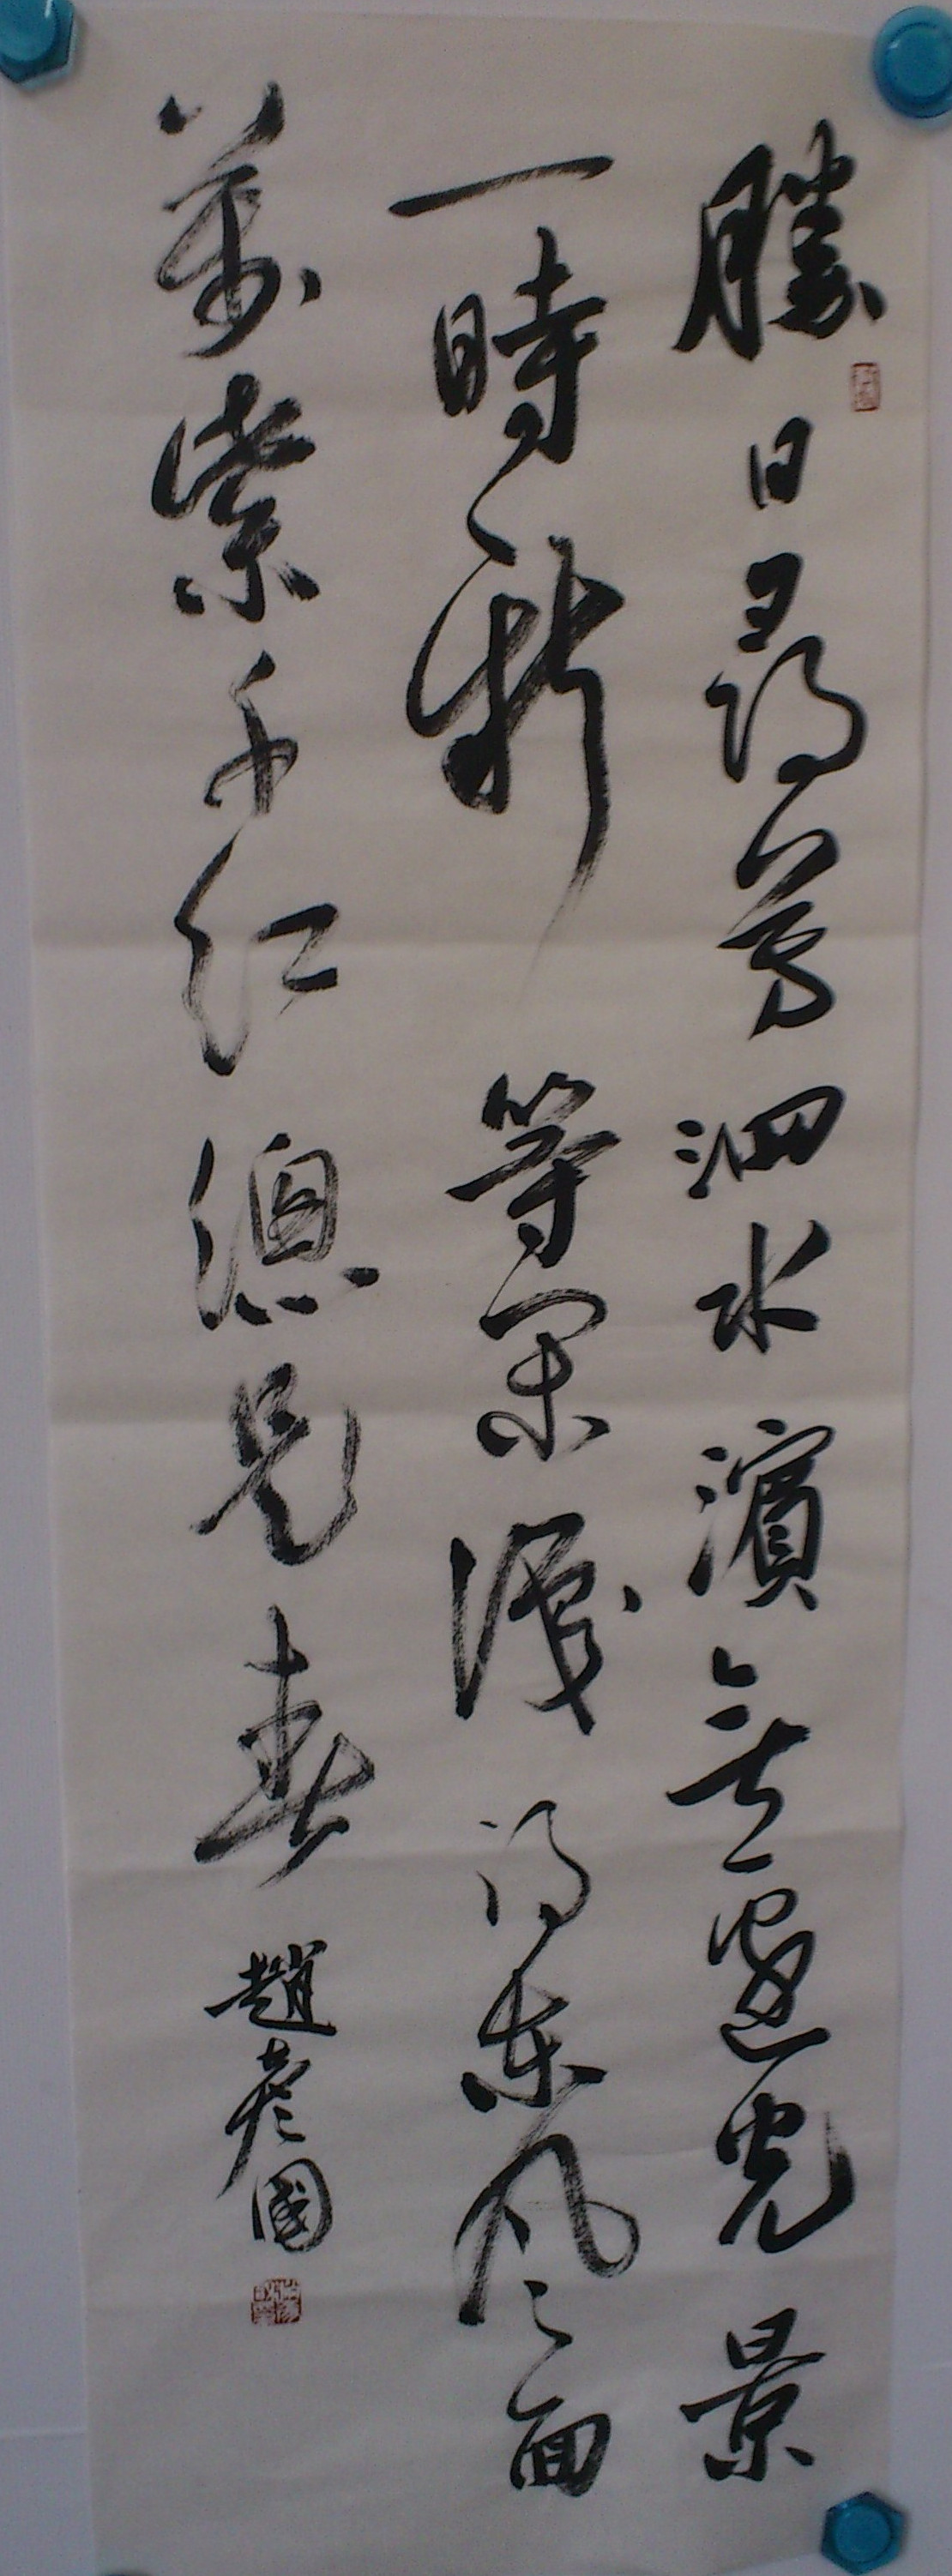 勝日尋芳泗水濱無邊光景
一時新等閑識得東風面
萬紫千红總見春
趙彦國